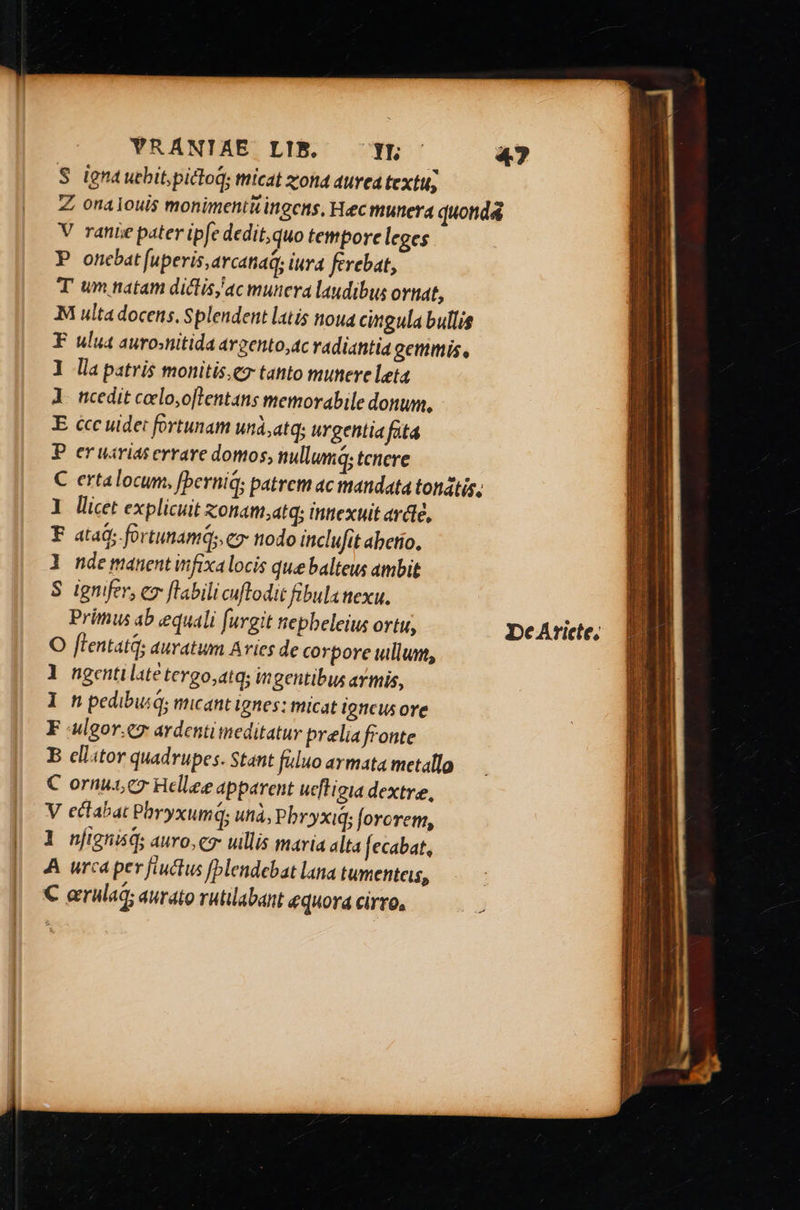 VRANIAE LIB. II. 47
S igna uehit, pictoq; micat zona aurea textu,
Z ona Iouis monimentũ ingens. Hæc munera quondã
V raniæ pater ipſe dedit, quo tempore leges
P onebat ſuperis, arcanaq; iura ferebat,
T um natam dictis, ac munera laudibus ornat,
M ulta docens. Splendent latis noua cingula bullis
F ulua auro, nitida argento, ac radiantia gemmis.
I lla patris monitis, & tanto munere læta
I ncedit cœlo, oſtentans memorabile donum.
E cce uidet fortunam unà, atq; urgentia fata
P er uarias errare domos, nullumq; tenere
C erta locum, ſperniq; patrem ac mandata tonãtis.
I llicet explicuit zonam, atq; innexuit arctè,
F ataq; fortunamq;, & nodo incluſit aheno.
I nde manent infixa locis quæ balteus ambit
S ignifer, & ſtabili cuſtodit fibula nexu.
Primus ab æquali ſurgit nepheleius ortu, De Ariete.
O ſtentatq; auratum Aries de corpore uillum,
I ngenti latè tergo, atq; ingentibus armis,
I n pedibusq; micant ignes: micat igneus ore
F ulgor, & ardenti meditatur prælia fronte
B ellator quadrupes. Stant fuluo armata metallo
C ornua, & Hellææ apparent ueſtigia dextræ,
V ectabat Phryxumq; unà, Phryxiq; ſororem,
I nſignisq; auro, & uillis maria alta ſecabat,
A urea per fluctus ſplendebat lana tumenteis,
C ærulaq; aurato rutilabant æquora cirro.